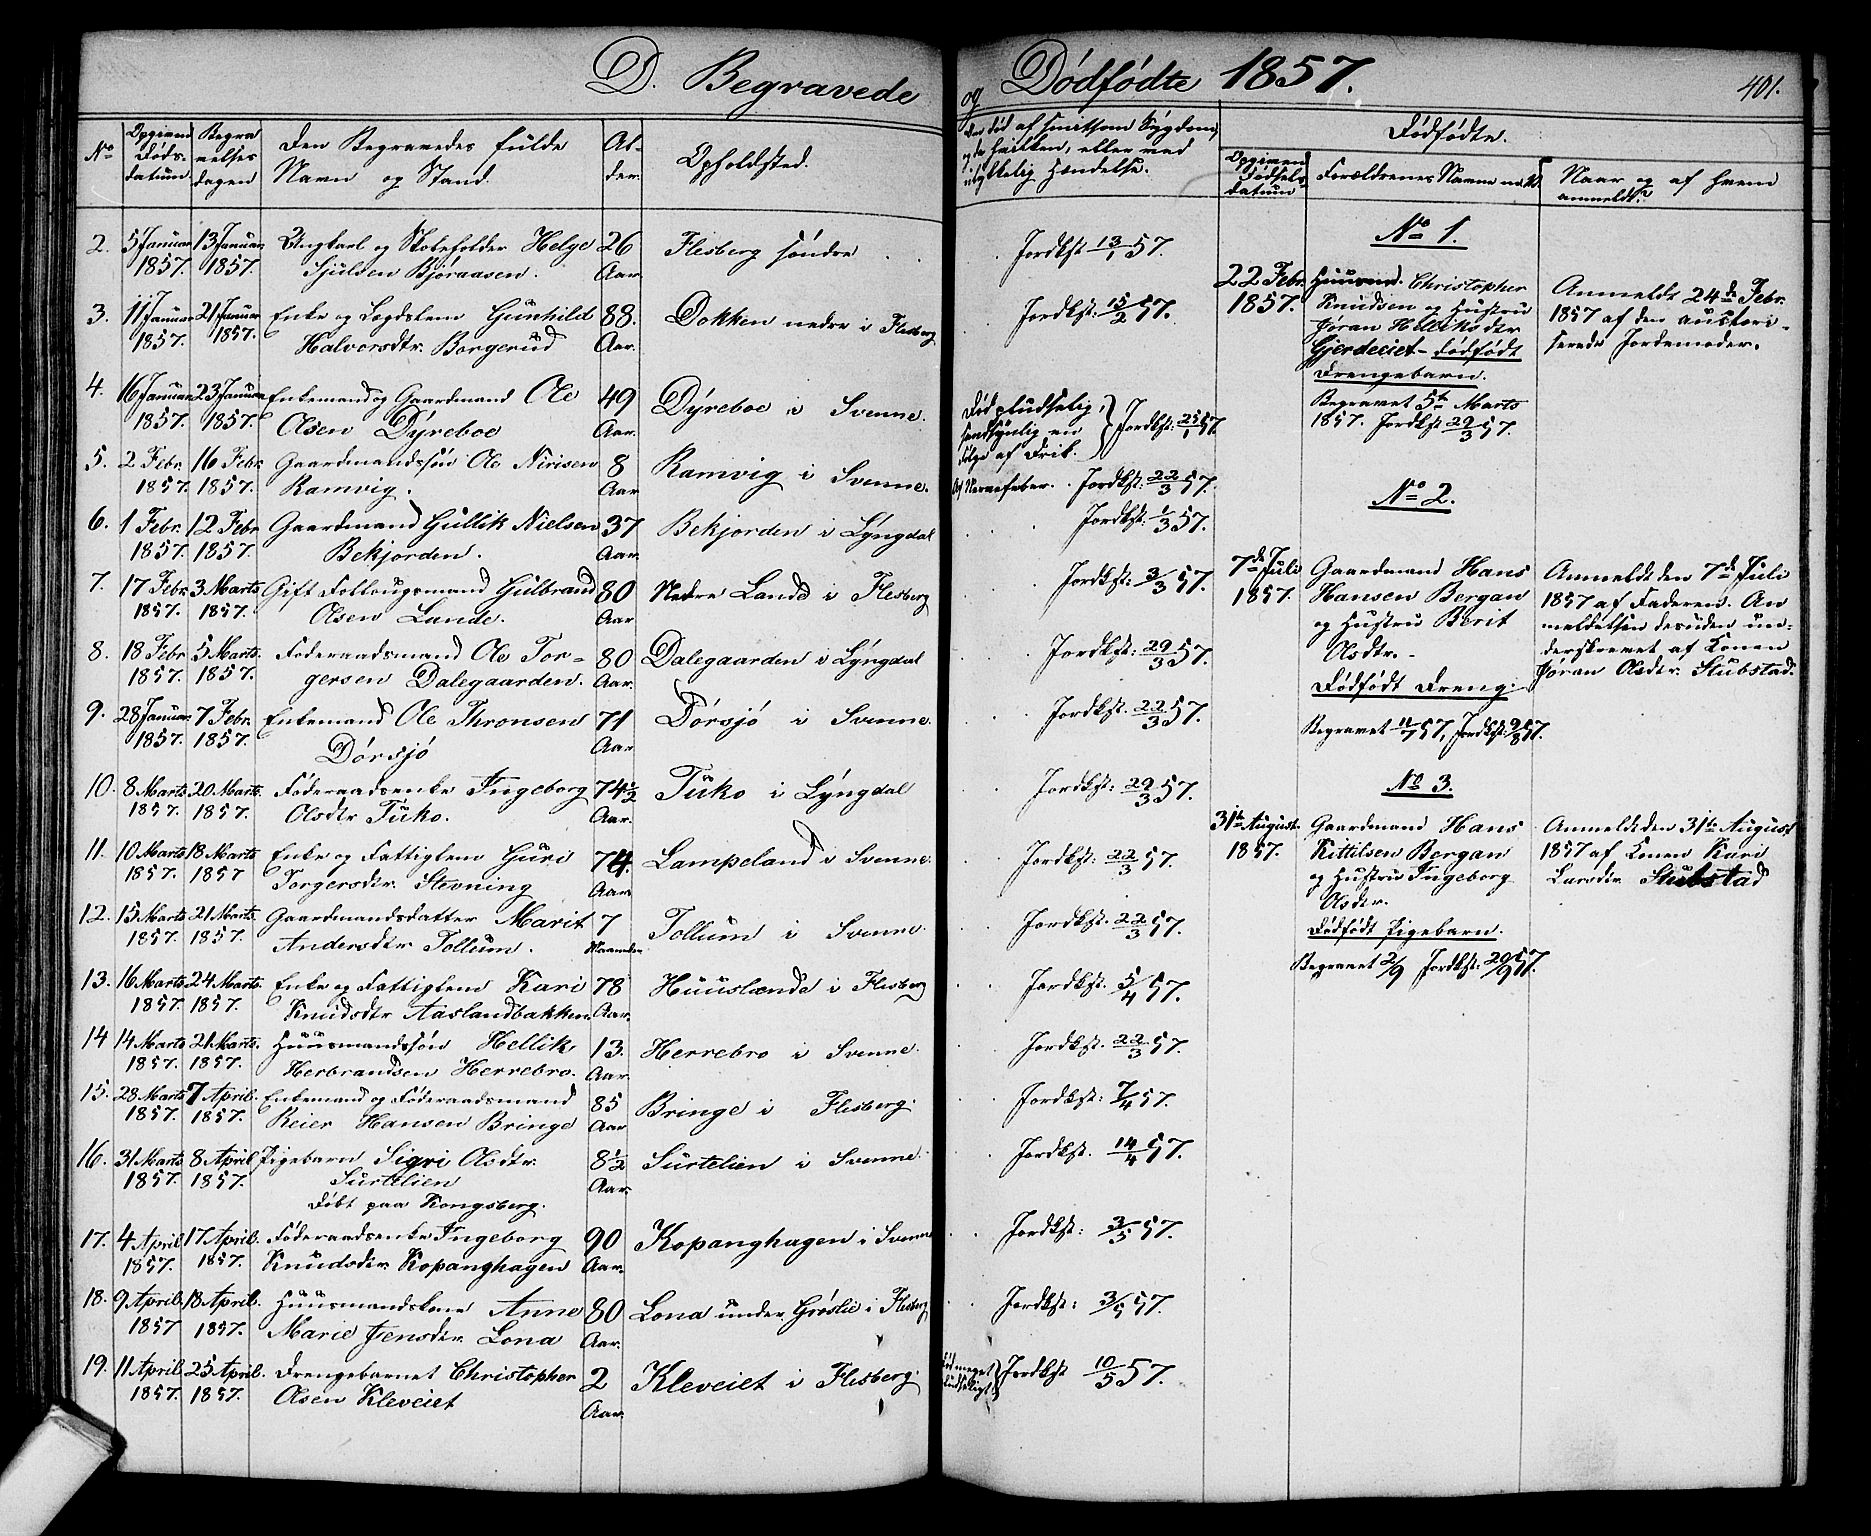 D. Begravede og Dødfødte 1857.
401.
No
Opgiven Døds- datum
Begra velses dagen
Den Begravedes fulde Navn og Stand.
Al- der.
Opholdsted.
Død af smitsom Sygdom, eller ved ulykkelig Hændelse.
Dødfødte.
Opgiven Fødsels datum
Forældrenes Navne
Naar og af hvem anmeldt?
2. 5 Januar 1857. 13 Januar 1857. Ungkarl og Skoleholder Helge Gjulsen Bjøraasen. 26 Aar. Flesberg søndre Jordkst 13/1 57.
3. 11 Januar 1857. 21 Januar 1857. Enke og Lægdslem Gunhild Halvorsdtr. Borgerud 88. Aar. Dokken nedre i Flesberg Jordkst. 15/2 57.
4. 16 Januar 1857. 23 Januar 1857. Enkemand og Gaardmand Ole Olsen Dýreboe 49 Aar. Dýreboe i Svenne. Død pludselig, sandsynlig en Følge af Drik. Jordkst: 25/1 57.
5. 2 Febr. 1857. 16 Febr. 1857. Gaardmandssøn Ole Nirisen Ramvig. 8 Aar Ramvig i Svenne. Af Nervefeber. Jordkst. 22/3 57.
6. 1 Febr. 1857. 12 Febr. 1857. Gaardmand Gullik Nielsen Bekjorden. 37 Aar. Bekjorden i Lýngdal Jordkst: 1/3 57.
7. 17 Febr. 1857. 3 Marts 1857. Gift Follougsmand Gulbrand Olsen Lande. 80 Aar Nedre Lande i Flesberg Jordkst: 3/3 57.
8. 18 Febr 1857. 5 Marts. 1857. Føderaadsmand Ole Tor- gersen Dalegaarden. 80 Aar. Dalegaarden i Lýngdal Jordkst: 29/3 57.
9. 28 Januar. 1857. 7 Febr. 1857. Enkemand Ole Thronsen Dørsjø 71 Aar Dørsjø i Svenne. Jordkst. 22/3 57.
10. 8 Marts 1857. 20 Marts. 1857. Føderaadsenke Ingeborg Olsdtr Tuko. 74 1/2 Aar. Tuko i Lýngdal Jordkst: 29/3 57.
11. 10 Marts 1857. 18 Marts 1857 Enke og Fattiglem Guri Torgersdtr. Stevning 74. Aar Lampeland i Svenne. Jordkst: 22/3 57.
12. 15 Marts 1857. 21 Marts. 1857. Gaardmandsdatter Marit Andersdtr Tollum. 7 Maaneder Tollum i Svenne. Jordkst. 22/3 57.
13. 16 Marts 1857. 24 Marts. 1857. Enke og Fattiglem Kari Knudsdtr Aaslandbakken. 78 Aar. Huuslænde i Flesberg Jordkst. 5/4 57.
14 14 Marts 1857. 21 Marts. 1857. Huusmandssøn Hellik Herbrandsen Herrebro. 13. Aar. Herrebro i Svenne. Jordkst. 22/3 57.
15. 28 Marts 1857. 7 April. 1857. Enkemand og Føderaadsmand Reier Hansen Bringe 85 Aar Bringe i Flesberg. Jordkst: 7/4 57.
16. 31 Marts 1857. 8 April 1857. Pigebarn Sigri Olsdtr. Surtelien Døbt paa Kongsberg. 8 1/2 Aar. Surtelien i Svenne. Jordkst. 14/4 57.
17. 4 April 1857. 17 April. 1857. Føderaadsenke Ingeborg Knudsdtr. Kopanghagen 90 Aar. Kopanghagen i Svenne Jordkst: 3/5 57.
18. 9 April. 1857 18 April. 1857. Huusmandskone Anne Marie Jensdtr. Lona 80 Aar. Lona under Grøslie i Flesberg Jordkst: 3/5 57.
19. 11 April. 1857. 25 April. 1857. Drengebarnet Christopher Olsen Kleveiet 2 Aar. Kleveiet i Flesberg. Død meget pludseligt. Jordkst 10/5 57.
No 1.
22 Febr. 1857.
Huusmd. Christopher
Knudsen og Hustru
Jøran Helliksdtr
Gjerdeeiet - Dødfødt
Drengebarn.
Begravet 5te Marts
1857. Jordkst 29/3 57.
Anmeldt 24de Febr.
1857 af den auctori-
serede Jordemoder.
No 2.
7de Juli 1857.
Gaardmand Hans
Hansen Bergan
og Hustru Berit
Olsdtr.
Dødfødt Dreng.
Begravet 11/7 57, Jordkst: 9/8 57.
Anmeldt den 7de Juli
1857 af Faderen. An
meldelsen desuden un-
derskrevet af Konen
Jøran Olsdtr. Stubstad.
No 3.
31te August. 1857.
Gaardmand Hans
Kittilsen Bergan
og Hustru Ingeborg
Olsdtr.
Dødfødt Pigebarn.
Begravet 2/9 Jordkst: 20/9 57.
Anmeldt den 31te August
1857 af Konen Kari
Larsdtr Stubstad